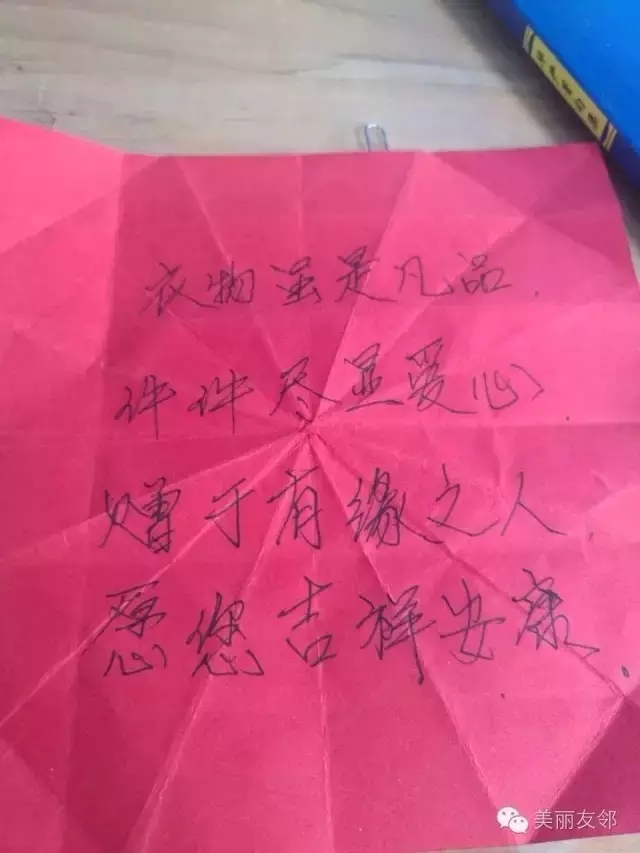 衣物虽是凡品.
件件尽显爱心
赠于有缘之人.
愿您吉祥安康.
美丽友邻